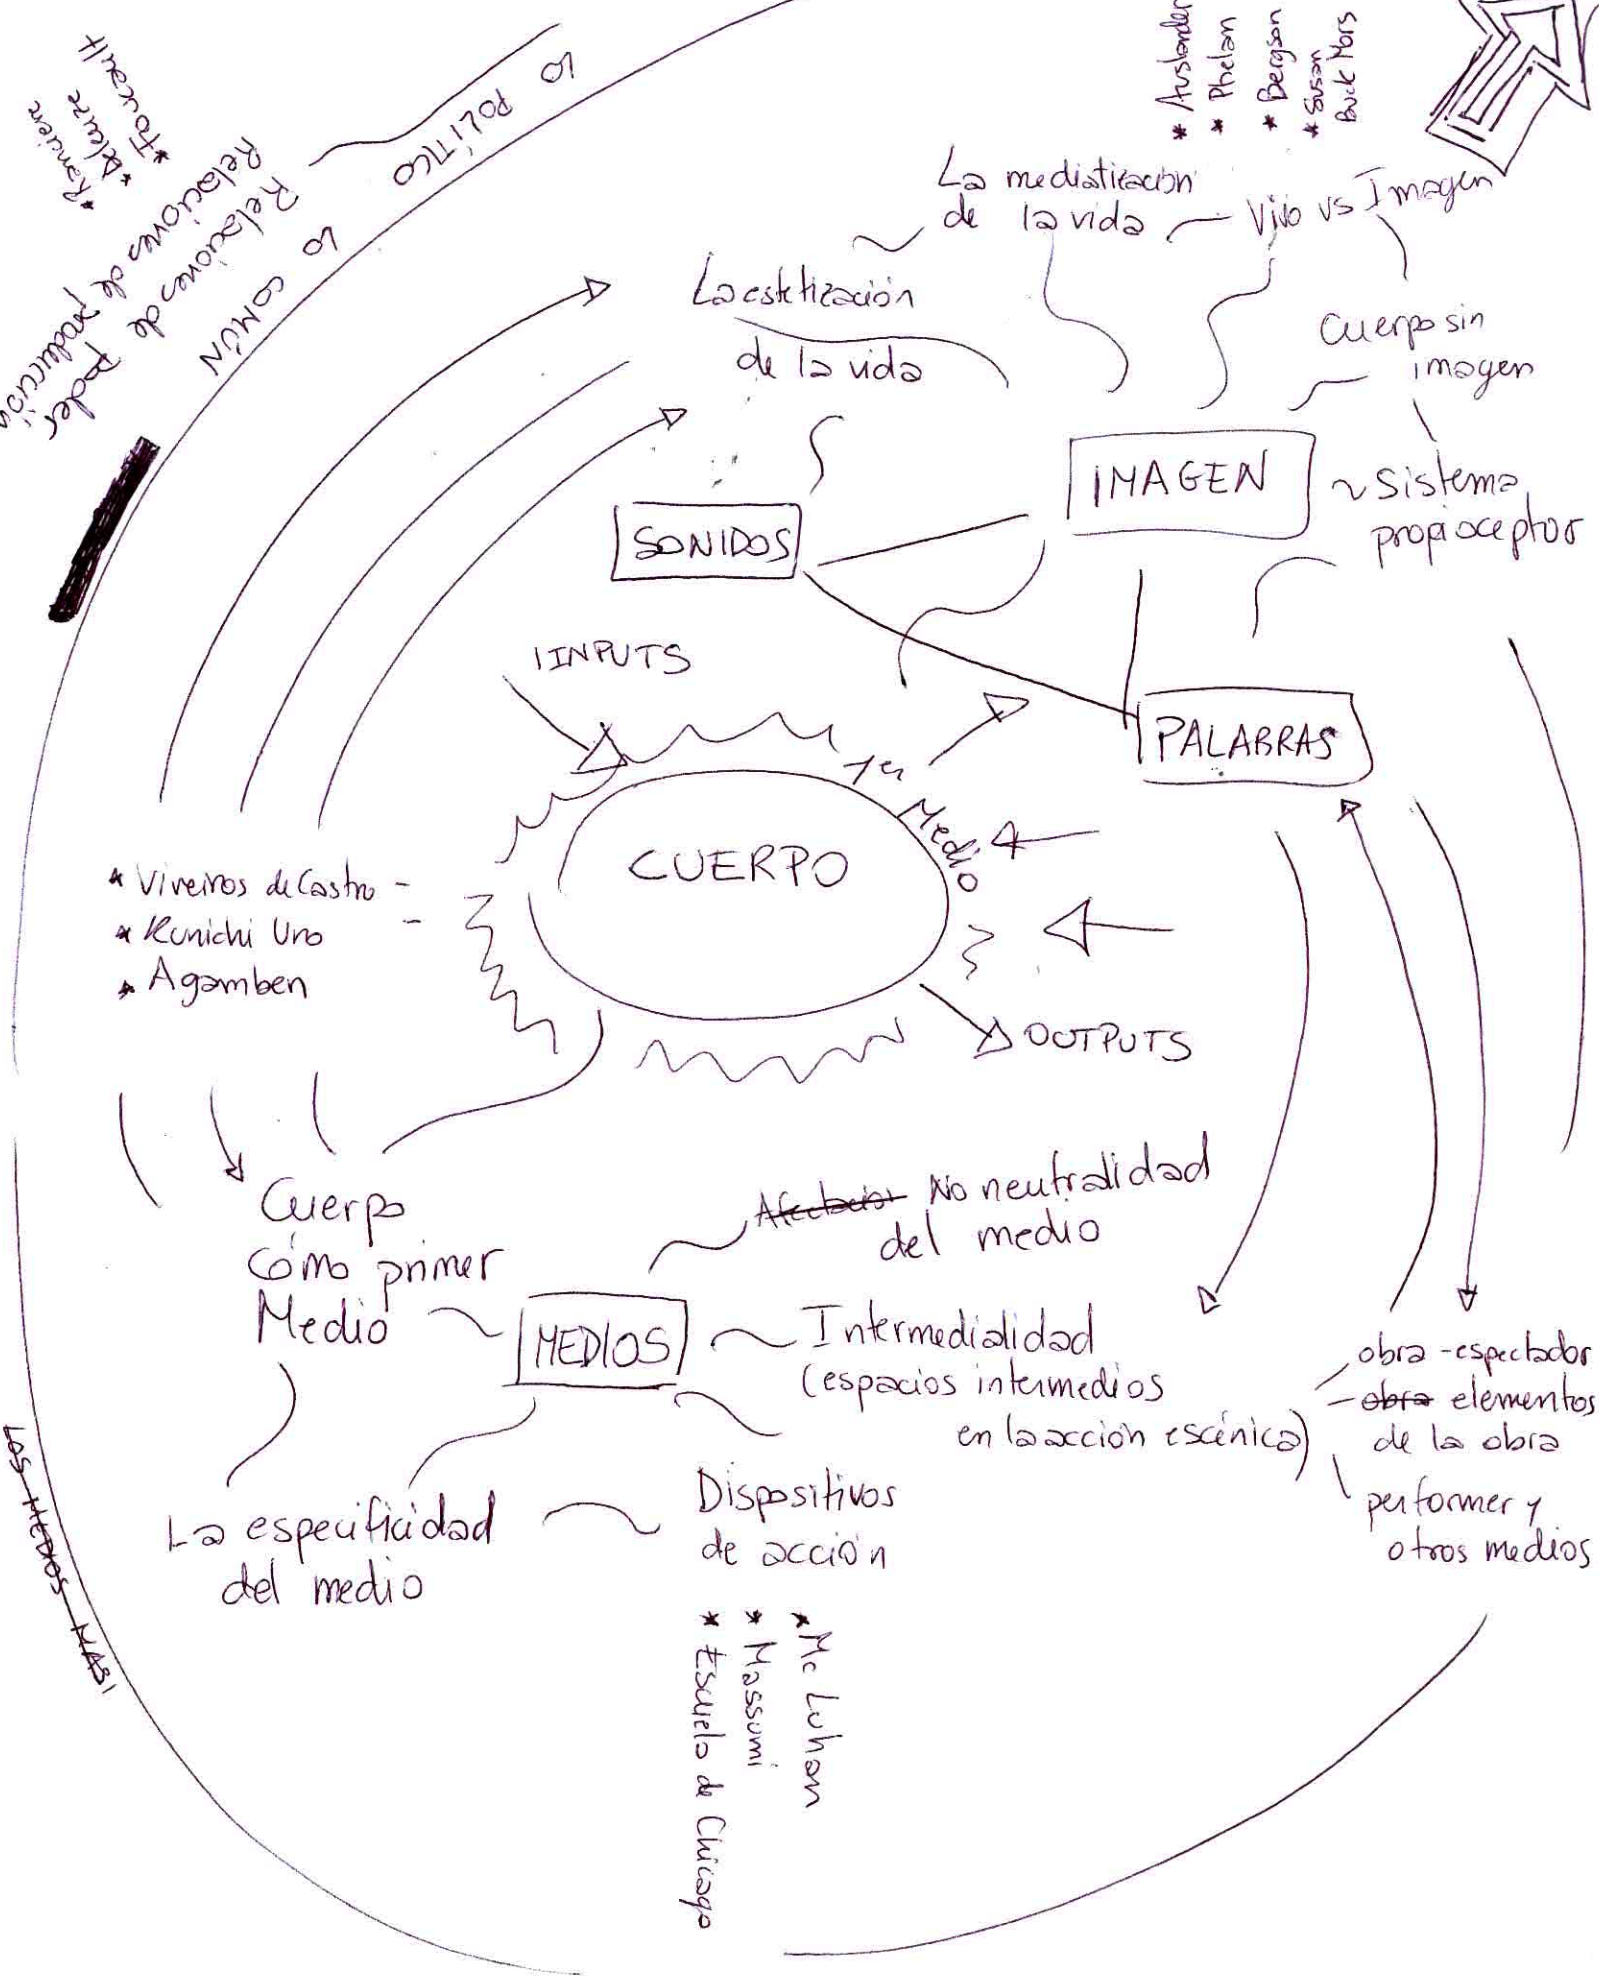 * Foucault
* Deleuze
* Rancière
LO POLÍTICO
LO COMÚN
Relaciones de poder
Relaciones de producción
* Auslander
* Phelan
* Bergson
* Susan
Buck Mors
La mediatización
de la vida
Vivo vs Imagen
La estetización
de la vida
Cuerpo sin
imagen
IMAGEN
Sistema
propioceptor
SONIDOS
INPUTS
PALABRAS
1er Medio
CUERPO
* Viveiros de Castro -
* Kunichi Uno -
* Agamben
OUTPUTS
Cuerpo
cómo primer
Medio
No neutralidad
del medio
MEDIOS
Intermedialidad
(espacios intermedios
en la acción escénica)
obra - espectador
- obra elementos
de la obra
performer y
otros medios
La especificidad
del medio
Dispositivos
de acción
* Mc Luhan
* Massumi
* Escuela de Chicago
LOS MEDIOS MAS